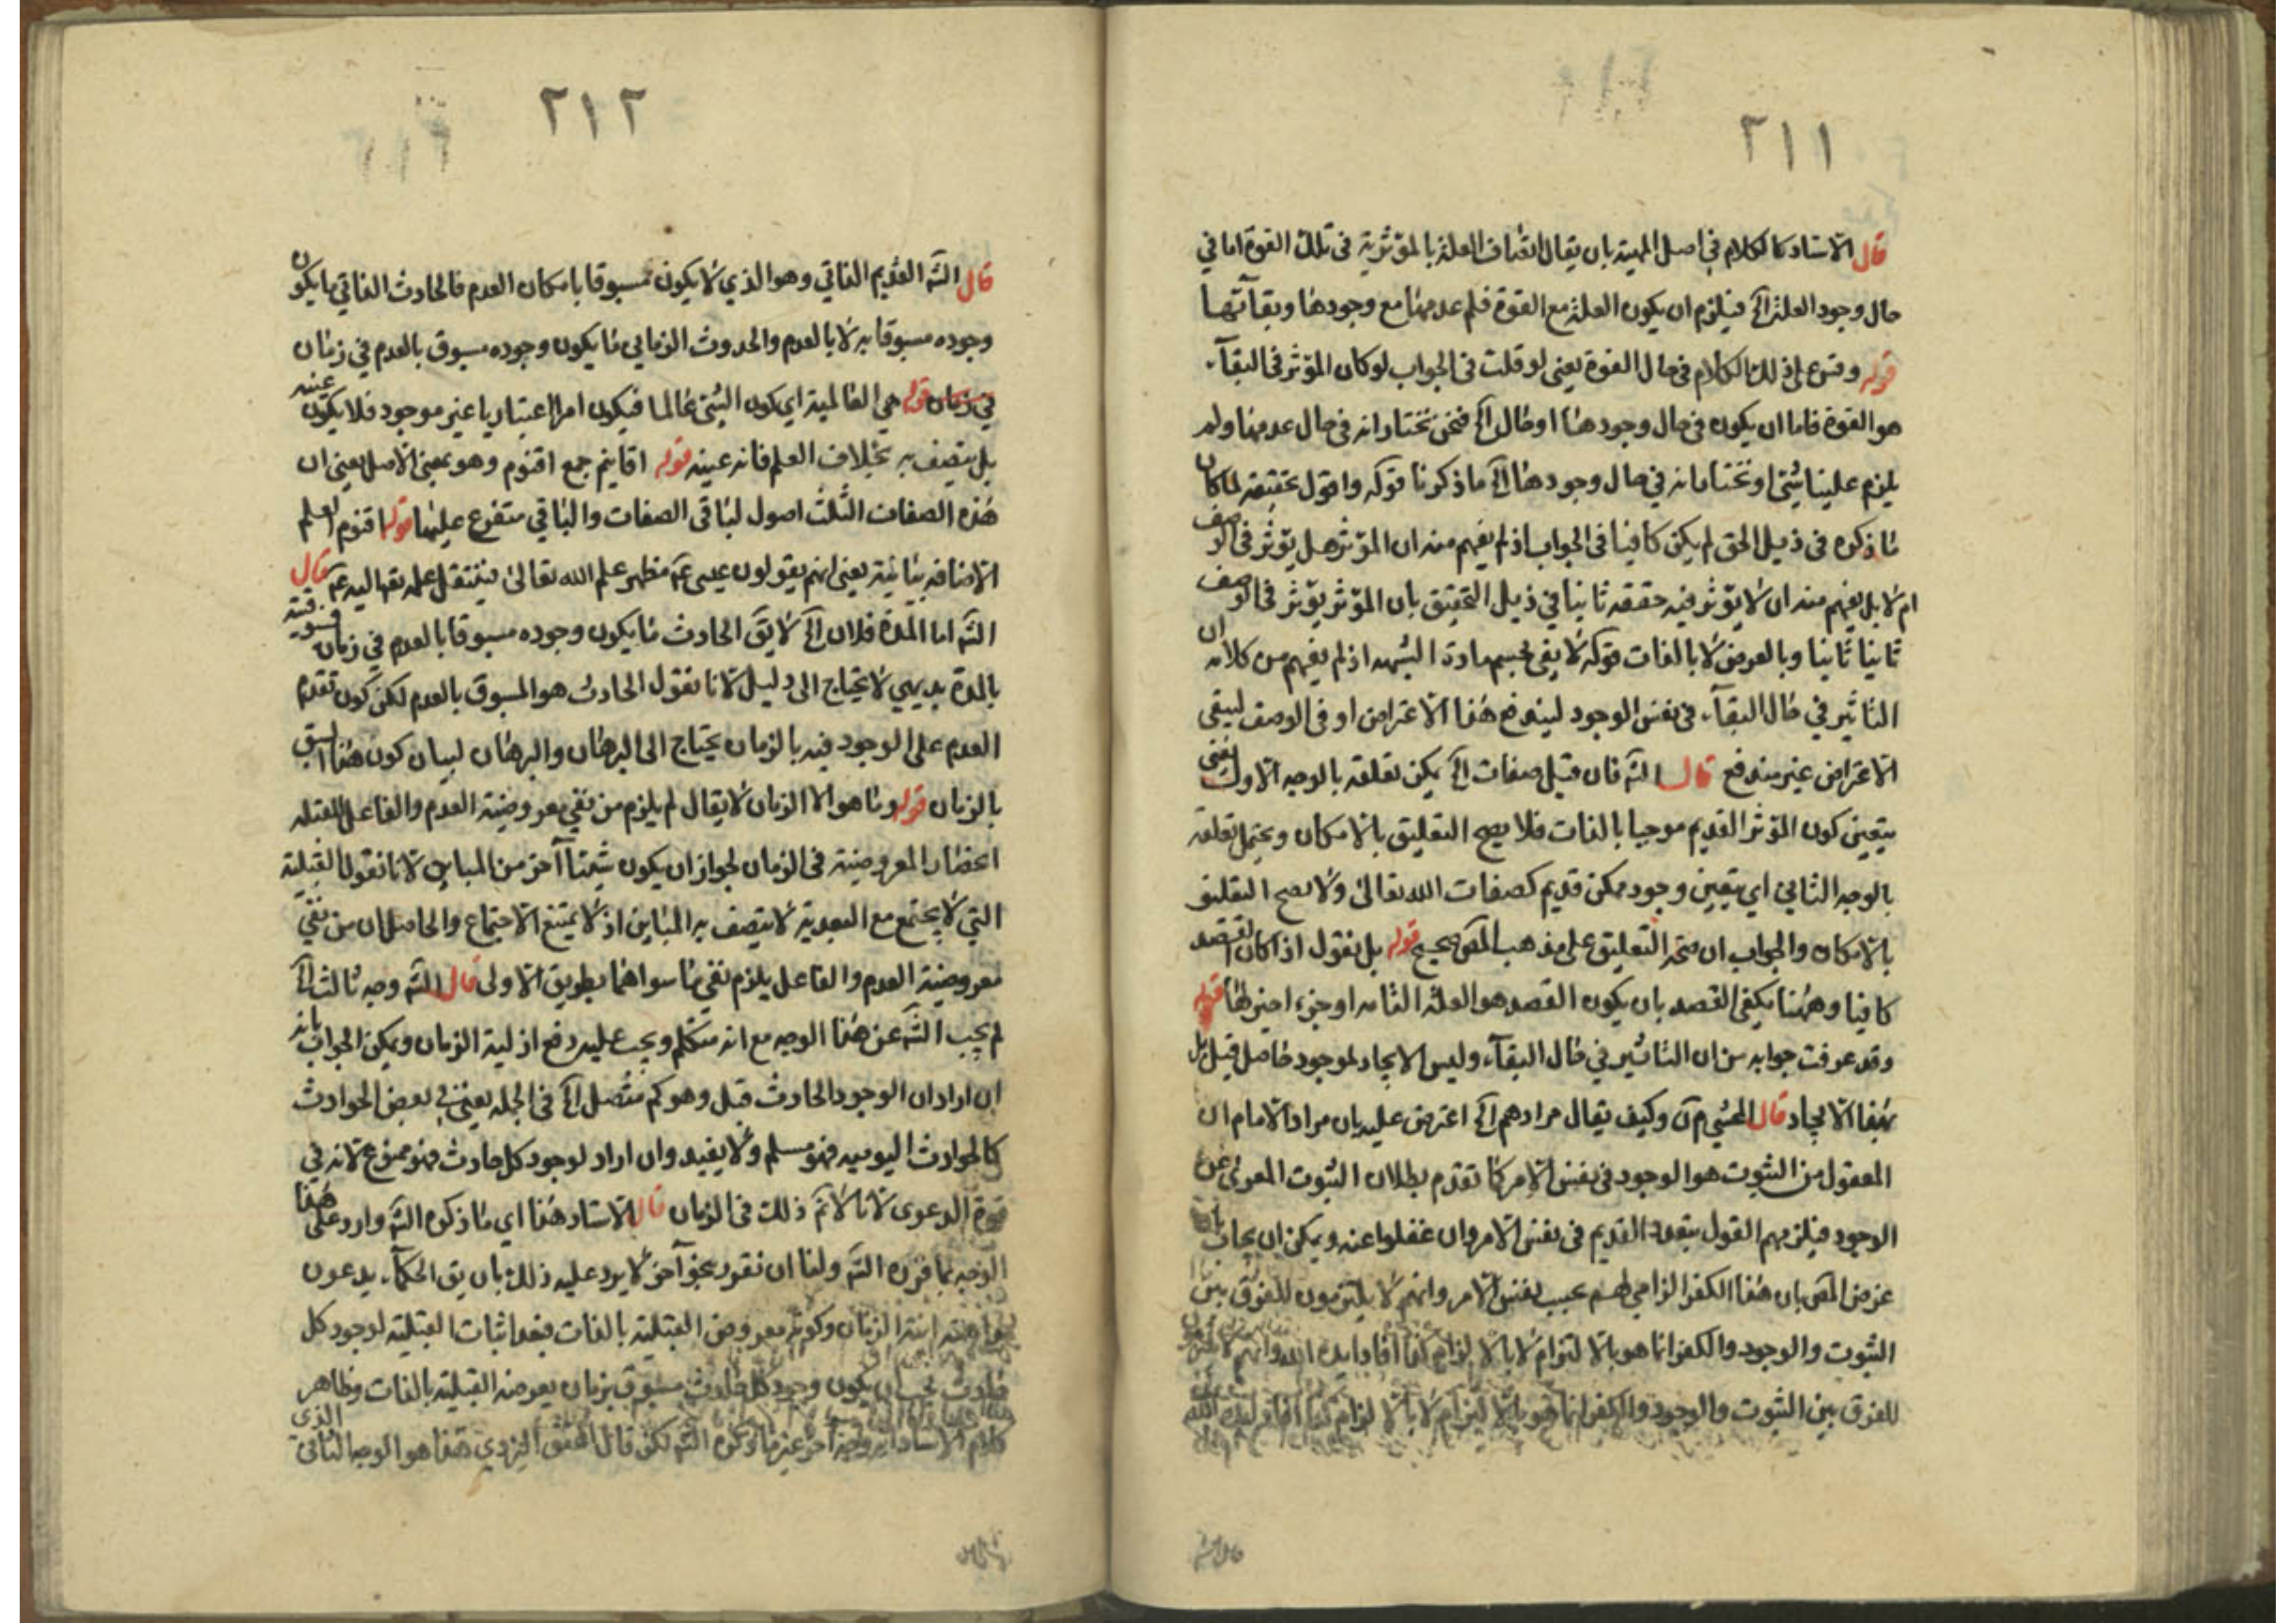 ٢١١
قال الاستاد كالكلام في اصل المهية بان يقال اتصاف العلة بالمؤثرية في تلك القوة اما في
حال وجود العلة الخ فيلزم ان يكون العلة مع القوة فلم عدمها مع وجودها وبقائها
قوله وقس على ذلك الكلام في حال القوة يعني لو قلت في الجواب لو كان المؤثر في البقآء
هو القوة فاما ان يكون في حال وجودها او حال الخ فنحن نختار انه في حال عدمها ولم
يلزم علينا شيئ او نختار انه في حال وجودها الخ ما ذكرنا قوله واقول تحقيقه لما كان
ما ذكره في ذيل الحق لم يكن كافيا في الجواب اذ لم يفهم منه ان المؤثر هل يؤثر في الوصف
ام لا بل يفهم منه ان لا يؤثر فيه حققه ثانيا في ذيل التحقيق بان المؤثر يؤثر في الوصف
ثانيا ثانيا وبالعرض لا بالذات قوله لا يفي لحسم مادة الشبهه اذ لم يفهم من كلامه ان
التاثير في حال البقآء في نفس الوجود ليندفع هذا الاعتراض او في الوصف ليبقى
الاعتراض غير مندفع قال الشه فان قيل صفات الخ يكن تعلقه بالوجه الاول يعني
يتعين كون المؤثر القديم موجبا بالذات فلا يصح التعليق بالامكان ويحتمل تعلقه
بالوجه الثاني اي يتعين وجود ممكن قديم كصفات الله تعالى ولا يصح التعليق
بالامكان والجواب ان صحة التعليق على مذهب المص صحيح قوله بل نقول اذا كان القصد
كافيا وههنا يكفي القصد بان يكون القصد هو العلة التامه او جزء اخير لها قوله
وقد عرفت جوابه من ان التاثير في حال البقآء وليس الايجاد لموجود حاصل قبل بل
بهذا الايجاد قال المحشي م ق وكيف يقال مرادهم الخ اعترض عليه بان مراد الامام ان
المعقول من الثبوت هو الوجود في نفس الامر كما تقدم بطلان الثبوت المعرى عن
الوجود فيلزمهم القول بتعدد القديم في نفس الامر وان غفلوا عنه ويمكن ان يجاب بان
غرض المص بان هذا الكفر الزامي لهم بحسب نفس الامر وانهم لا يلتزمون للفرق بين
الثبوت والوجود والكفر انما هو بالالتزام لا بالالزام كذا افاد ايده الله وانهم
للفرق بين الثبوت والوجود والكفر انما هو بالالتزام لا بالالزام كذا افاد ايده الله
٢١٢
قال الشه القديم الذاتي وهو الذي لا يكون مسبوقا بامكان العدم فالحادث الذاتي ما يكون
وجوده مسبوقا به لا بالعدم والحدوث الزماني ما يكون وجوده مسبوق بالعدم في زمان
في زمان قوله هي العالمية اي كون الشئ عالما فيكون امرا اعتباريا غير موجود فلا يكون عينه
بل يتصف به بخلاف العلم فانه عينه قوله اقانيم جمع اقنوم وهو بمعنى الاصل يعني ان
هذه الصفات الثلث اصول لباقي الصفات والباقي متفرع عليها قوله اقنوم العلم
الاضافه بيانية يعني انهم يقولون عيسى عم مظهر علم الله تعالى ينتقل علمه تعا اليه عم قال
الشه اما المدة فلان الخ لا يق الحادث ما يكون وجوده مسبوقا بالعدم في زمان
بالمدة بديهي لا يحتاج الى دليل لانا نقول الحادث هو المسبوق بالعدم لكن كون تقدم
العدم على الوجود فيه بالزمان يحتاج الى البرهان والبرهان لبيان كون هذا السبق
بالزمان قوله وما هو الا الزمان لا يقال لم يلزم من نفي معروضية العدم والفاعل للقبليه
انحصار المعروضية في الزمان لجواز ان يكون شيئا آخر من المباين لانا نقول القبلية
التي لا يجتمع مع البعدية لا يتصف به المباين اذ لا يمتنع الاجتماع والحاصل ان من نفي
معروضية العدم والفاعل يلزم نفي ما سواهما بطريق الاولى قال الشه وجه ثالث الخ
لم يجب الشه عن هذا الوجه مع انه متكلم ويجب عليه دفع ازلية الزمان ويمكن الجواب بانه
ان اراد ان الوجود الحادث قبل وهو كم متصل الخ في الجمله يعني في بعض الحوادث
كالحوادث اليوميه فهو مسلم ولا يفيد وان اراد لوجود كل حادث فهو ممنوع لانه في
قوة الدعوى لانا لا نم ذلك في الزمان قال الاستاد هذا اي ما ذكره الشه وارد على هذا
الوجه بما قرره الشه ولنا ان نقرر بنحو آخر لا يرد عليه ذلك بان يق الحكمآء يدعون
الزمان وكونه معروض القبلية بالذات فبعد اثبات القبلية لوجود كل
حادث يجب ان يكون وجود كل حادث مسبوق بزمان يعرضه القبلية بالذات وظاهر
كلام الاستاد انه وجه آخر غير ما ذكره الشه لكن قال المحقق اليزدي هذا هو الوجه الثاني الذي